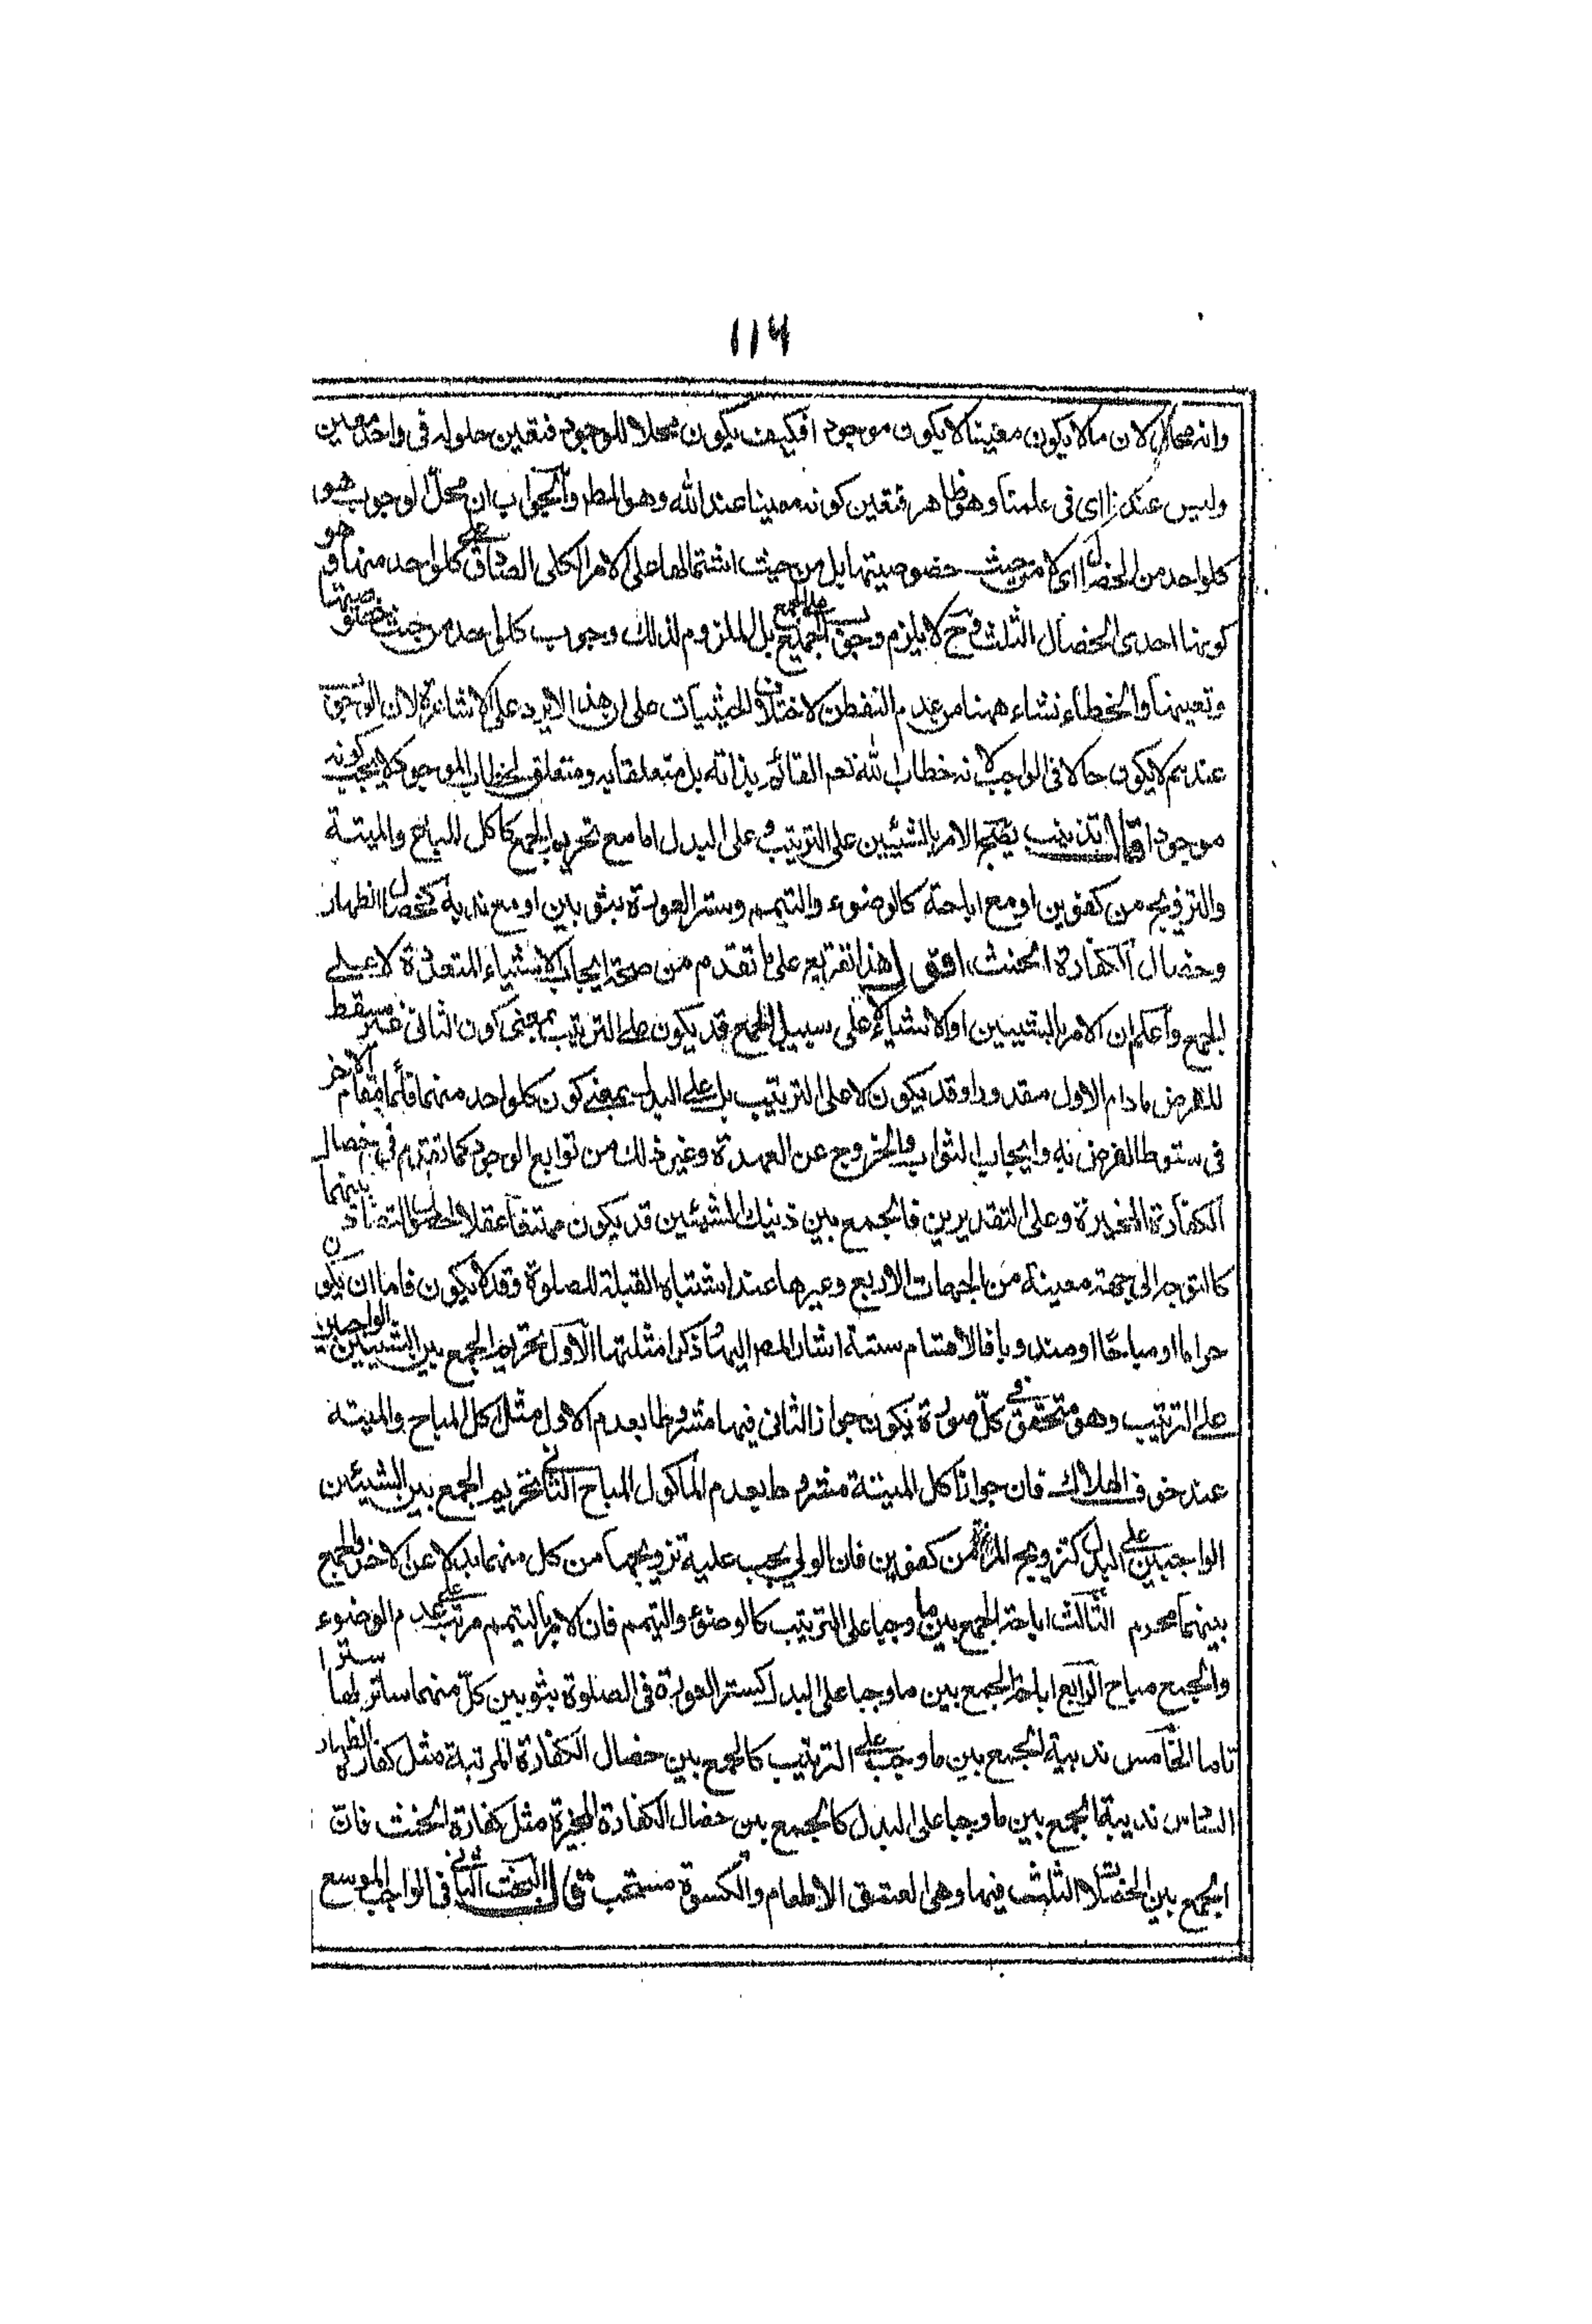 ١١٦
وانه محال لان ما لا يكون معينا لا يكون موجودا فكيف يكون محلا للوجوب فتعين حلوله فى واحد معين
وليس عندنا اى فى علمنا وهو ظاهر فتعين كونه معينا عند الله وهو المط والجواب ان محل الوجوب هو
كلواحد من الخصال اى لا من حيث خصوصيتها بل من حيث اشتمالها على الامر الكلى الصادق على كلواحد منها وهو
كونها احدى الخصال الثلث وح لا يلزم وجوب الجميع بل الملزوم لذلك وجوب كلواحد من حيث خصوصيتها
وتعينها والخطاء نشاء ههنا من عدم التفطن لاختلاف الحيثيات على ان هذا لا يرد على الاشاعرة لان الوجوب
عندهم لا يكون حالا فى الواجب لانه خطاب الله تعم القائم بذاته بل متعلقا به ومتعلق الخطاب الموجود لا يجب كونه
موجودا قال تذنيب يصح الامر بالشيئين على الترتيب وعلى البدل اما مع تحريم الجمع كاكل المباح والميتة
والتزويج من كفوين او مع اباحته كالوضوء والتيمم وستر العورة بثوبين او مع ندبه كخصال الظهار
وخصال الكفارة الحنث اقول هذا تفريع على ما تقدم من صحة ايجاب الاشياء المتعددة لا على
الجمع واعلم ان الامر بالشيئين او الاشياء لا على سبيل الجمع قد يكون على الترتيب بمعنى كون الثانى غير مسقط
للفرض ما دام الاول مقدورا وقد يكون لا على الترتيب بل على البدل بمعنى كون كلواحد منهما قائما مقام الاخر
فى سقوط الفرض به وايجاب الثواب والخروج عن العهدة وغير ذلك من توابع الوجوب كما تقدم فى خصال
الكفارة المخيرة وعلى التقديرين فالجمع بين ذينك الشيئين قد يكون ممتنعا عقلا لحصول التضاد بينهما
كالتوجه الى جهة معينة من الجهات الاربع وغيرها عند اشتباه القبلة للصلوة وقد لا يكون فاما ان يكون
حراما او مباحا او مندوبا فالاقسام ستة اشار المصـ اليها وذكر امثلتها الاول تحريم الجمع بين الشيئين الواجبين
على الترتيب وهو متحقق فى كل صورة يكون جواز الثانى فيها مشروطا بعدم الاول مثل اكل المباح والميتة
عند خوف الهلاك فان جواز اكل الميتة مشروط بعدم الماكول المباح الثانى تحريم الجمع بين الشيئين
الواجبين على البدل كتزويج المراة من كفوين فان الولى يجب عليه تزويجها من كل منهما بدلا عن الاخر والجمع
بينهما محرم الثالث اباحة الجمع بين ما وجبا على الترتيب كالوضوء والتيمم فان الامر بالتيمم مرتب على عدم الوضوء
والجمع مباح الرابع اباحة الجمع بين ما وجبا على البدل كستر العورة فى الصلوة بثوبين كل منهما ساتر لها سترا
تاما الخامس ندبية الجمع بين ما وجب على الترتيب كالجمع بين خصال الكفارة المرتبة مثل كفارة الظهار
السادس ندبية الجمع بين ما وجبا على البدل كالجمع بين خصال الكفارة المخيرة مثل كفارة الحنث فان
الجمع بين الخصال الثلث فيها وهى العتق الاطعام والكسوة مستحب قال البحث الثانى فى الواجب الموسع